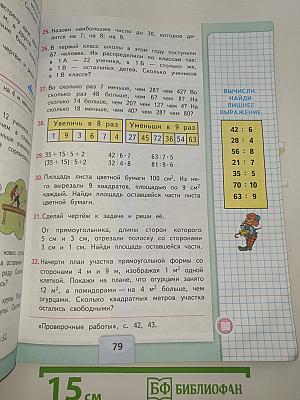 25. Назови наибольшее число до 30, которое де-
лится на 7; на 8; на 9.
26. В первый класс школы в этом году поступили
67 человек. Их распределили по классам так:
в 1 А — 22 ученика, в 1 Б — столько же,
в 1 В — остальных детей. Сколько учеников
в 1 В классе?
27. Во сколько раз 7 меньше, чем 28? чем 42? Во
сколько раз 48 больше, чем 6? чем 8? На
сколько 74 больше, чем 20? чем 12? чем 4? На
сколько 18 меньше, чем 40? чем 81? чем 90?
28.
Увеличь в 8 раз
Уменьши в 9 раз
1 9 3 6 7 4 27 45 72 36 54 63
29. 35 + 15 : 5 + 2 42 : 6 · 7 63 : 7 · 5
(35 + 15) : 5 + 2 42 : 7 · 6 81 : 9 · 7
30. Площадь листа цветной бумаги 100 см². Из не-
го вырезали 9 квадратов, площадью по 9 см²
каждый. Найди площадь оставшейся части листа
цветной бумаги.
31. Сделай чертёж к задаче и реши её.
От прямоугольника, длины сторон которого
5 см и 3 см, отрезали полоску со сторонами
3 см и 1 см. Найди площадь оставшейся части.
32. Начерти план участка прямоугольной формы со
сторонами 4 м и 9 м, изображая 1 м² одной
клеткой. Покажи на плане, что огурцами занято
12 м², а помидорами — на 4 м² больше, чем
огурцами. Сколько квадратных метров участка
остались свободными?
«Проверочные работы», с. 42, 43.
79
ВЫЧИСЛИ.
НАЙДИ
ЛИШНЕЕ
ВЫРАЖЕНИЕ.
42 : 6
28 : 4
56 : 8
21 : 7
35 : 5
70 : 10
63 : 9
15 см
БФ БИБЛИОФАН